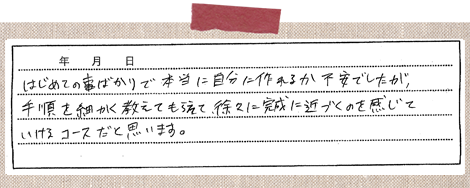 年 月 日
はじめての事ばかりで本当に自分に作れるか不安でしたが、
手順を細かく教えてもらえて、徐々に完成に近づくのを感じて
いけるコースだと思います。